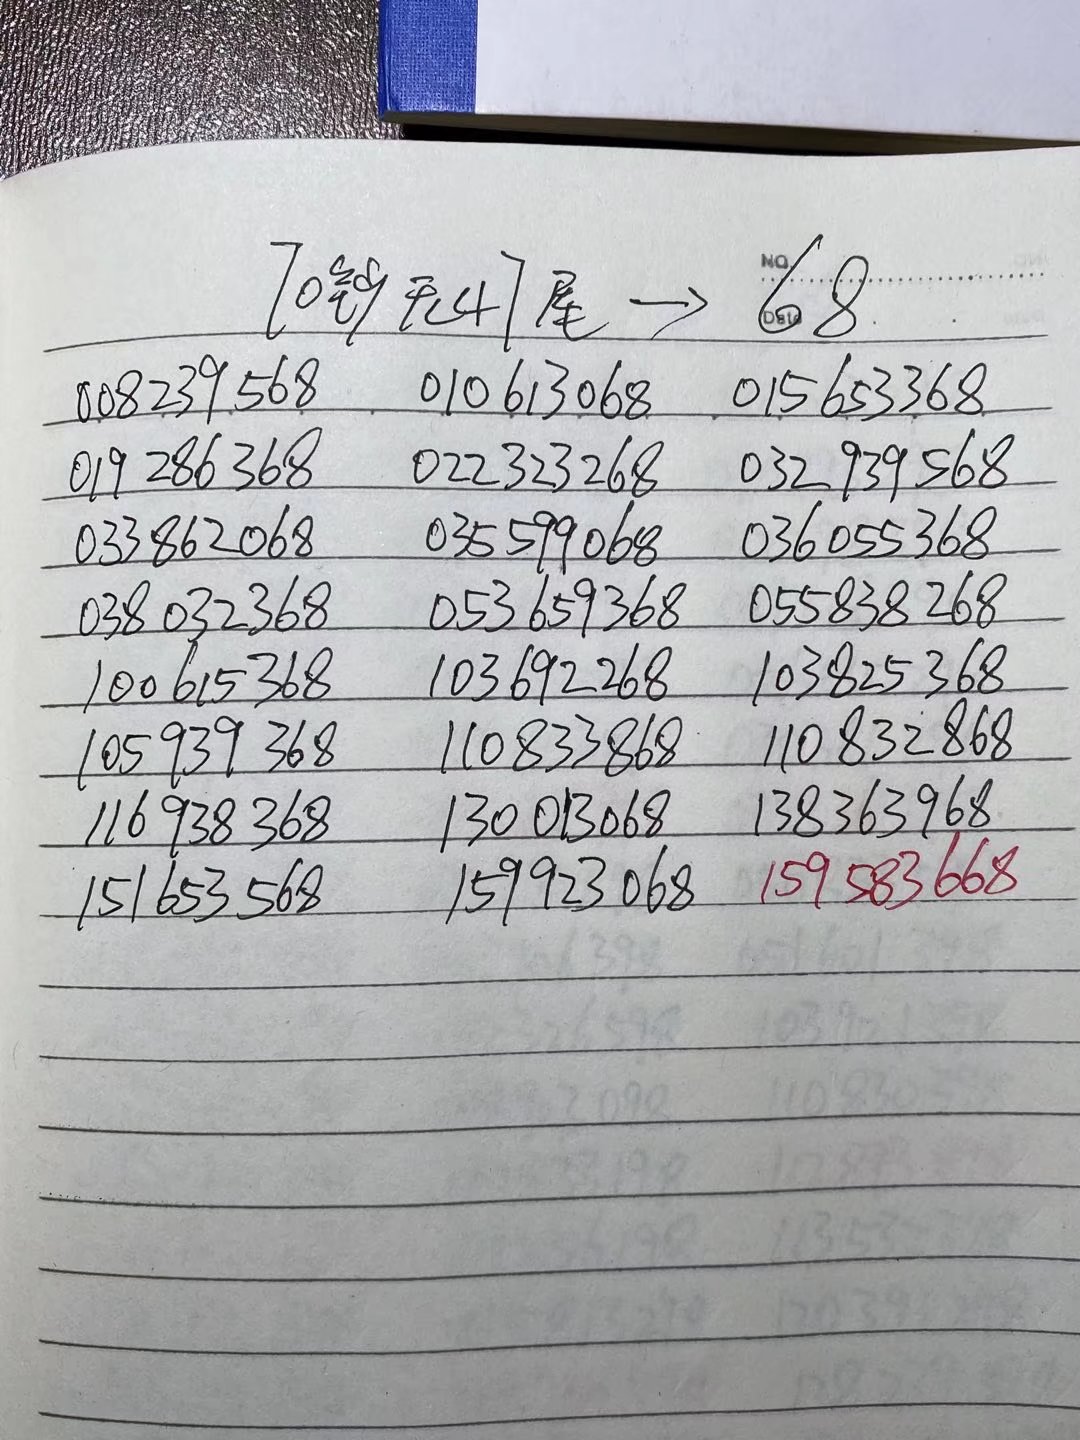 NO.
Date
[0嘴无4]尾 → 68
008239568 010613068 015653368
019286368 022323268 032939568
033862068 035599068 036055368
038032368 053659368 055838268
100615368 103692268 103825368
105939368 110833868 110832868
116938368 130013068 138363968
151653568 159923068 159583668